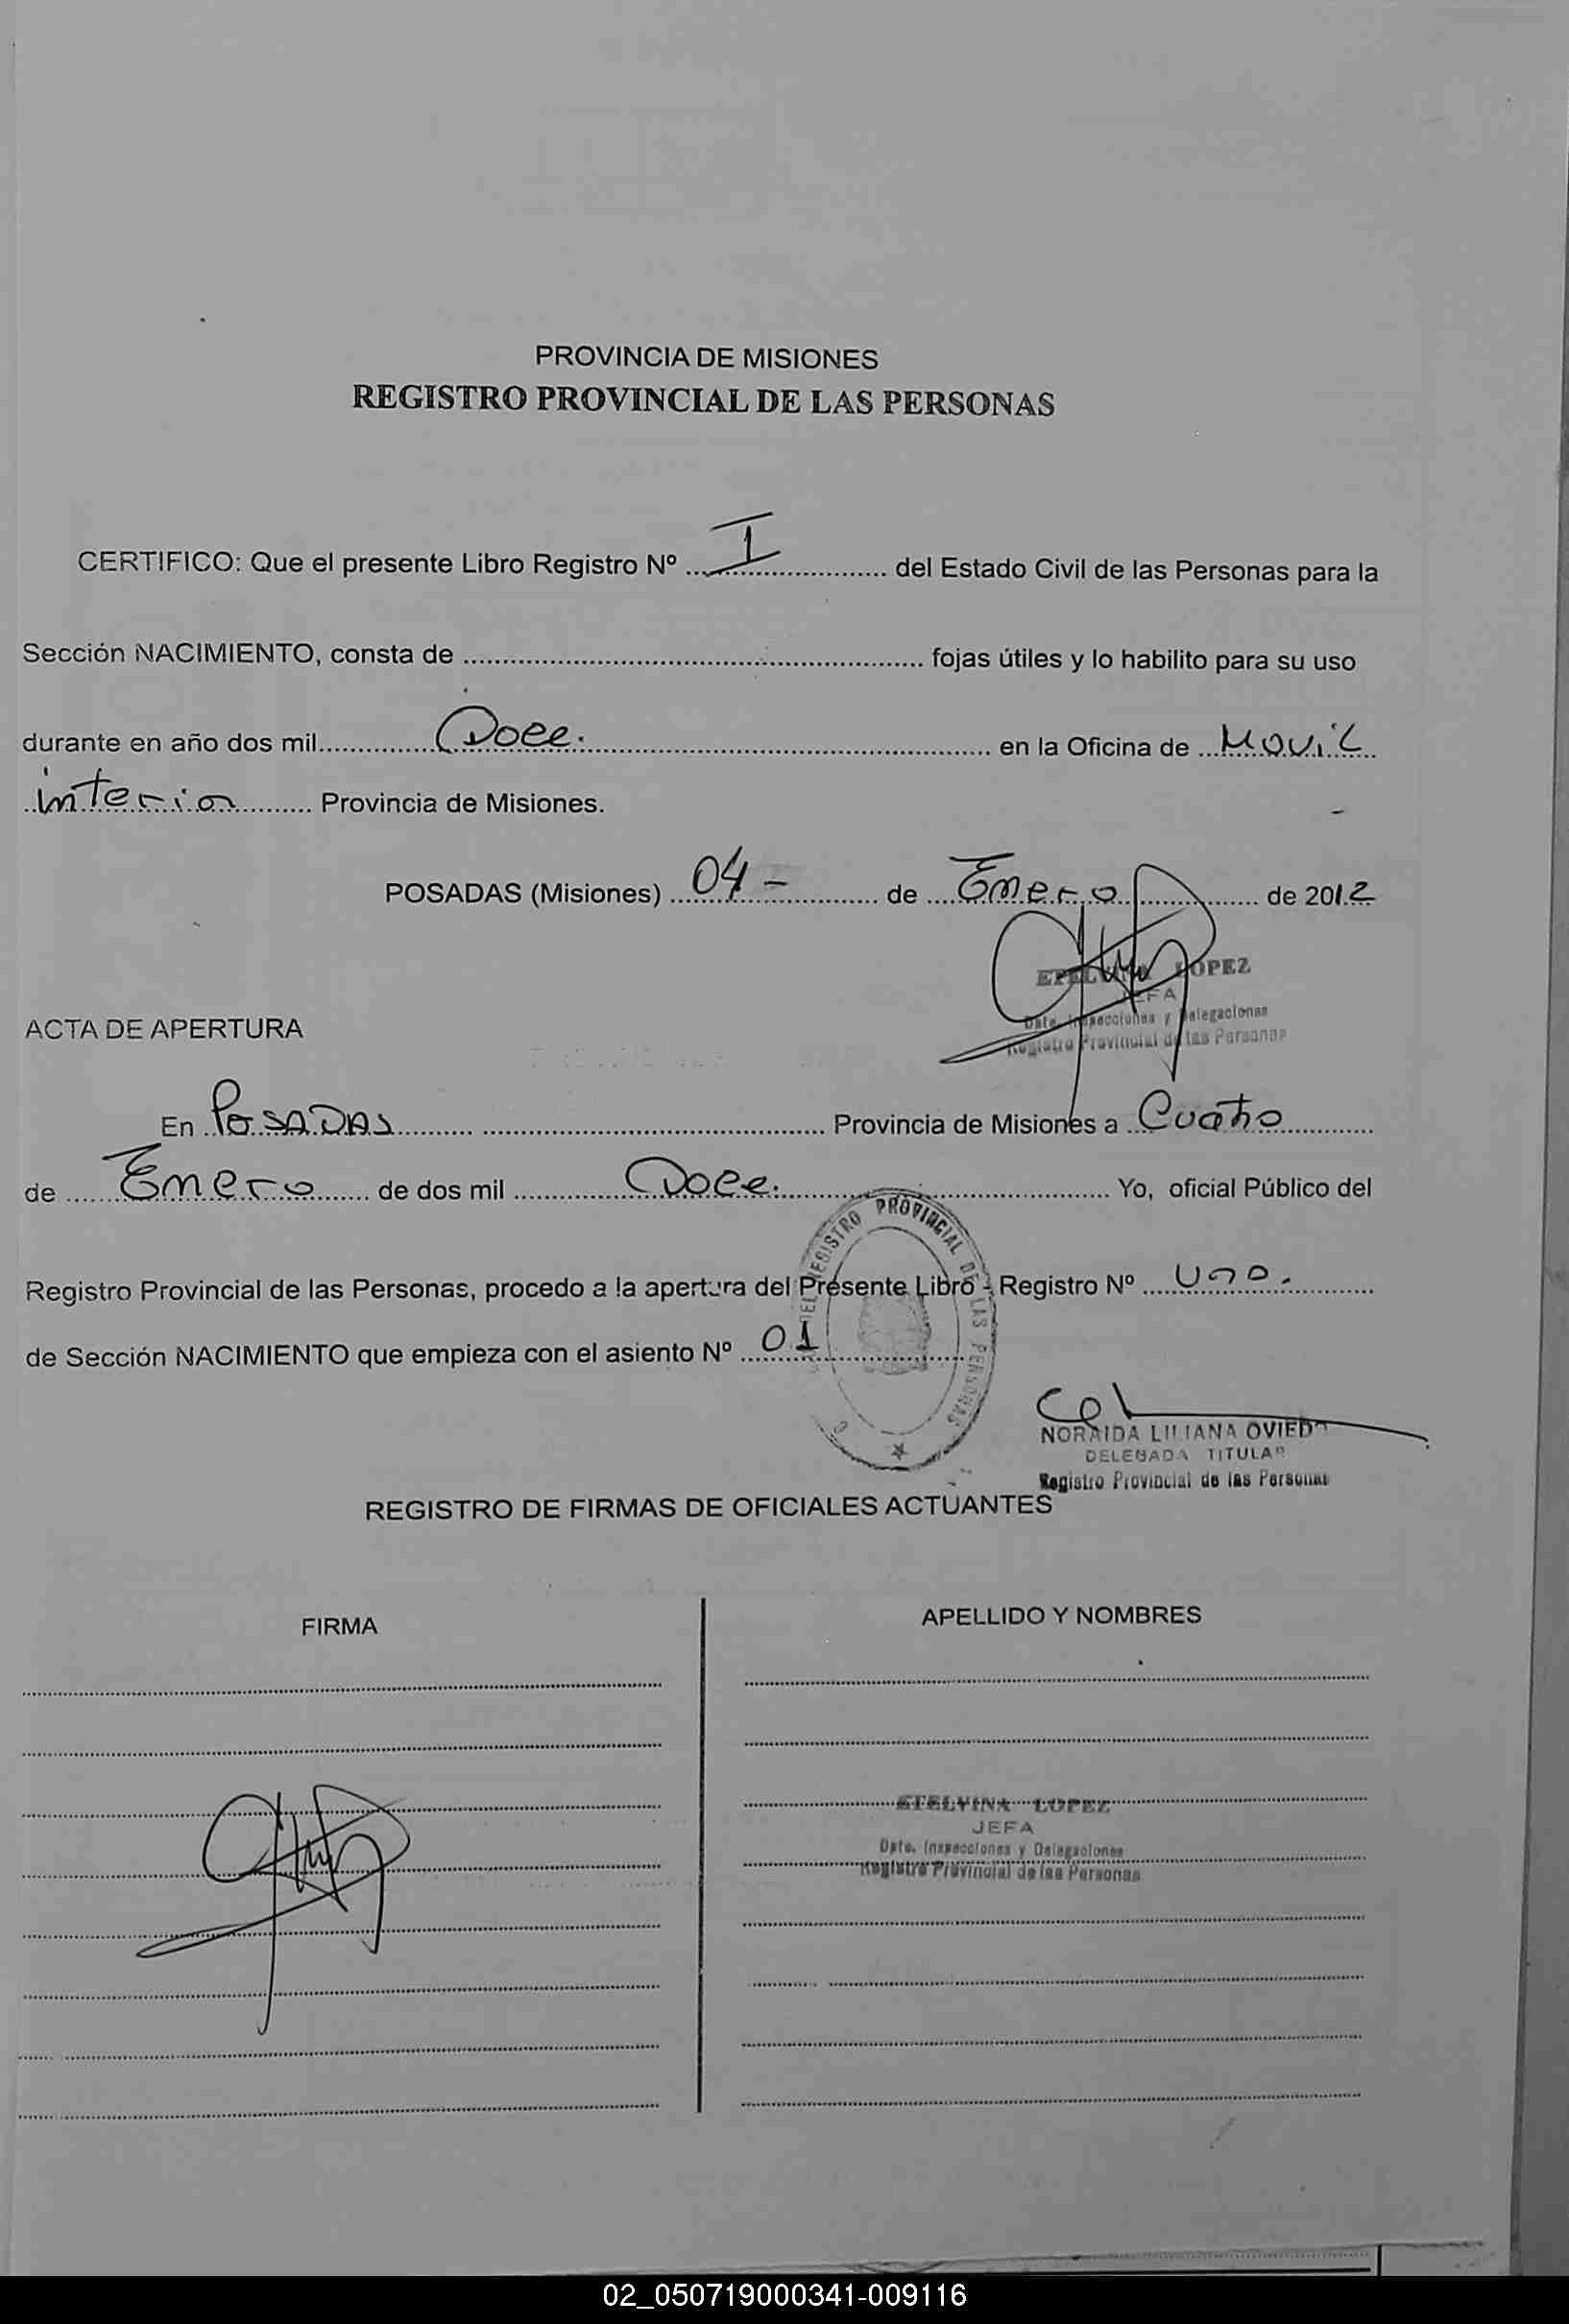 PROVINCIA DE MISIONES
REGISTRO PROVINCIAL DE LAS PERSONAS
CERTIFICO: Que el presente Libro Registro Nº I del Estado Civil de las Personas para la
Sección NACIMIENTO, consta de ........ fojas útiles y lo habilito para su uso
durante en año dos mil Doce. en la Oficina de Movil
interior Provincia de Misiones.
POSADAS (Misiones) 04 - de Enero de 2012
ETELVINA LOPEZ
JEFA
Dpto. Inspecciones y Delegaciones
Registro Provincial de las Personas
ACTA DE APERTURA
En POSADAS Provincia de Misiones a Cuatro
de Enero de dos mil Doce. Yo, oficial Público del
REGISTRO PROVINCIAL DE LAS PERSONAS
Registro Provincial de las Personas, procedo a la apertura del Presente Libro - Registro Nº Uno.
de Sección NACIMIENTO que empieza con el asiento Nº 01
NORAIDA LILIANA OVIEDO
DELEGADA TITULAR
Registro Provincial de las Personas
REGISTRO DE FIRMAS DE OFICIALES ACTUANTES
FIRMA
APELLIDO Y NOMBRES
ETELVINA LOPEZ
JEFA
Dpto. Inspecciones y Delegaciones
Registro Provincial de las Personas
02_050719000341-009116